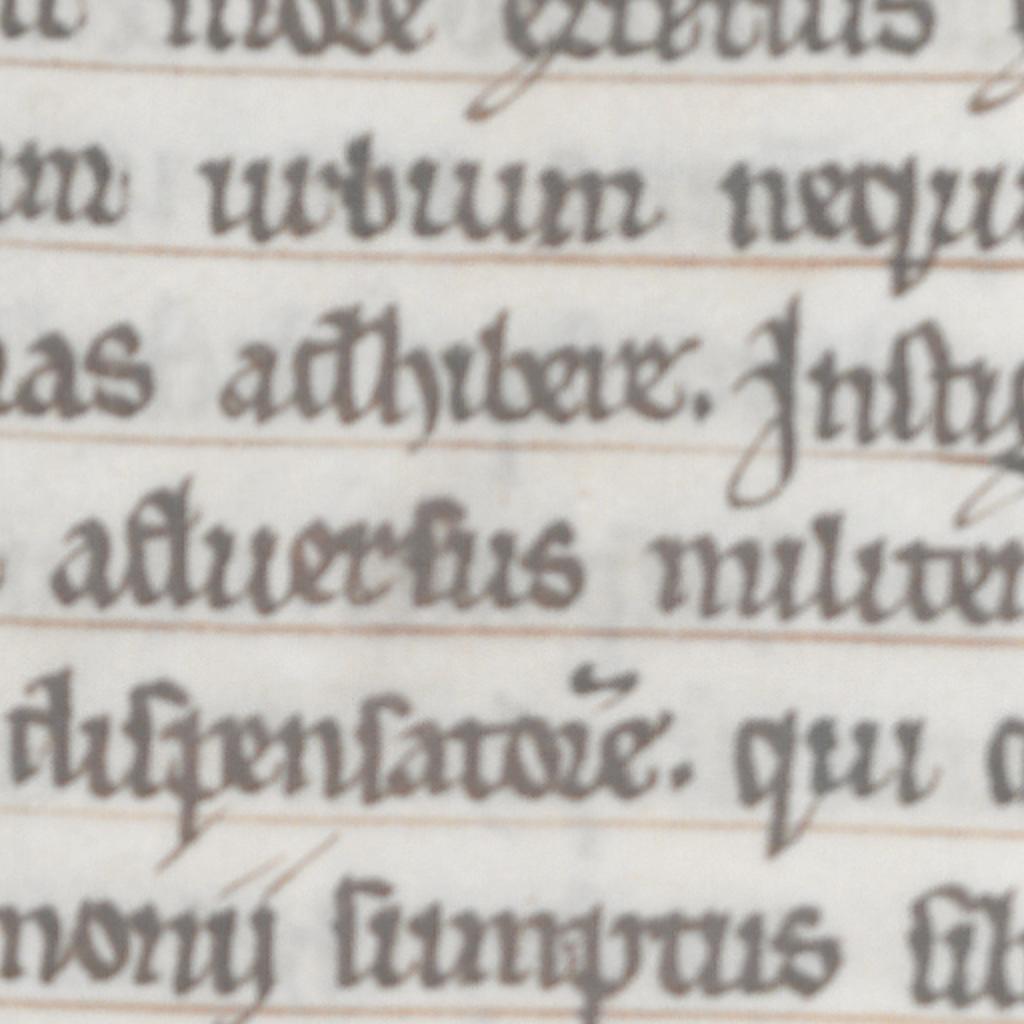 more exterius
urbium nequi
nas adhibere. Instig
aduersus militen
dispensatorē. qui
monij sumptus sib